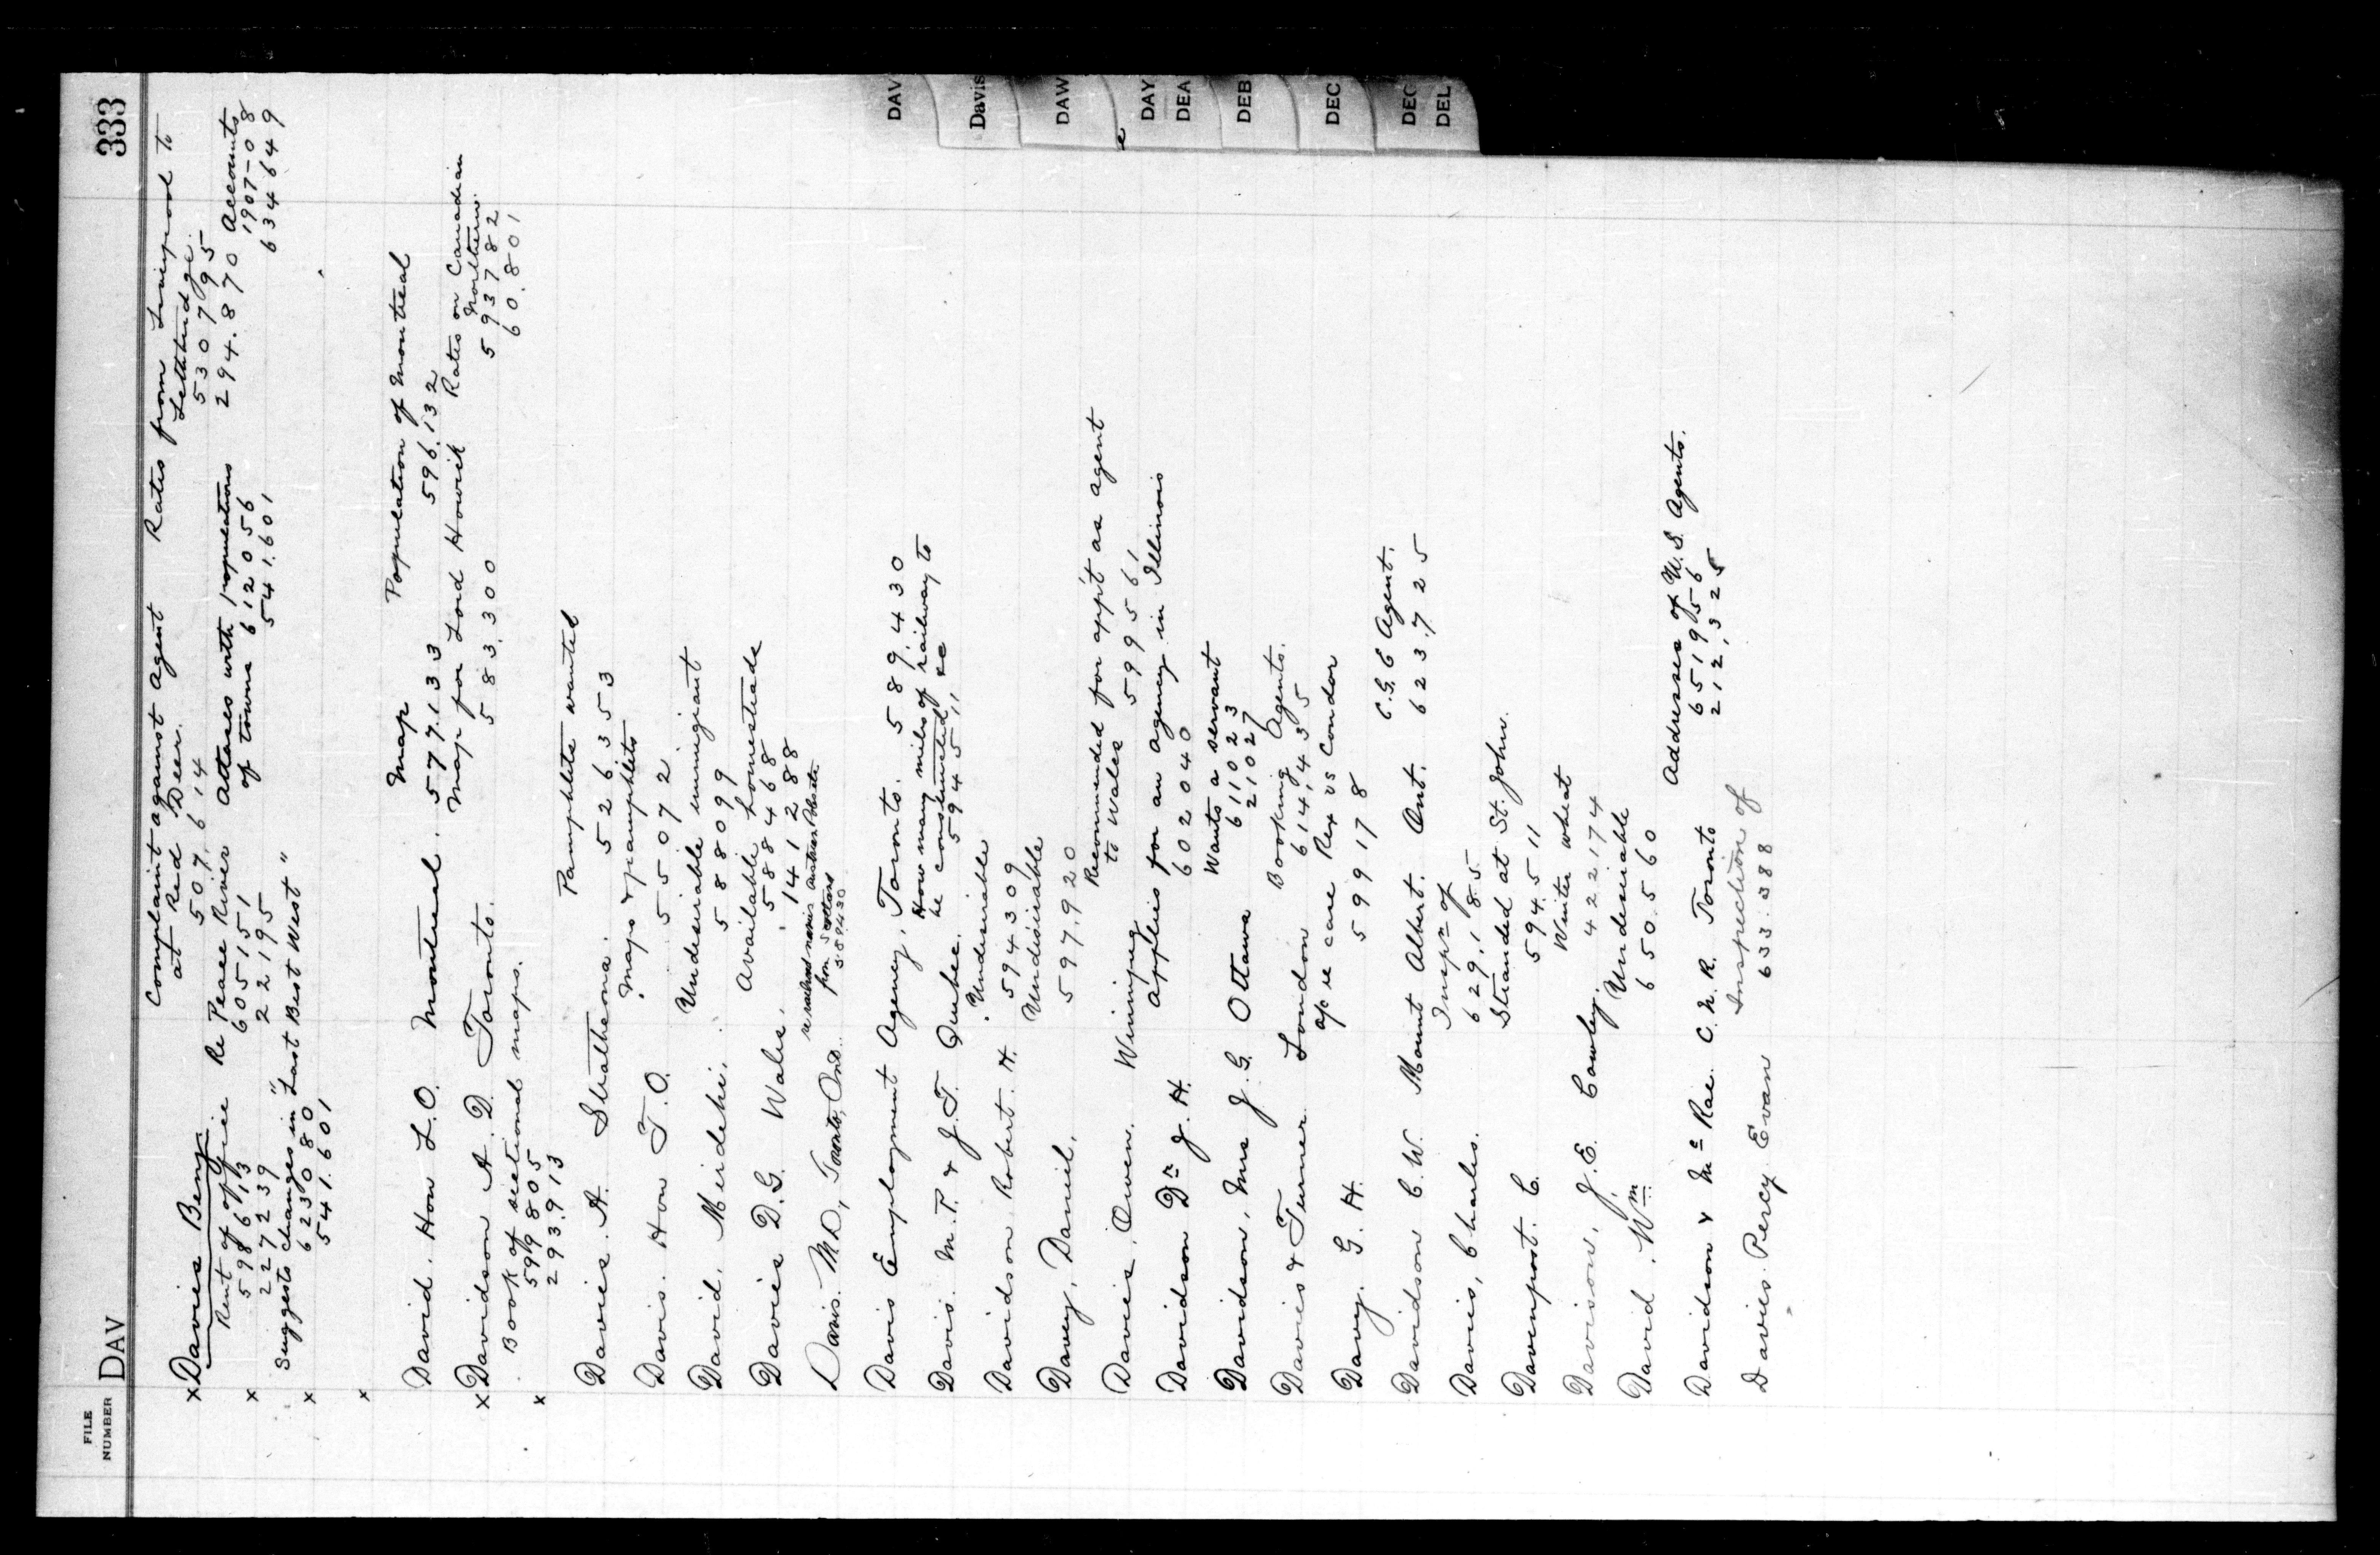 FILE NUMBER DAV 333
x Davies Benj Complaint against agent Rates from Liverpool to
at Red Deer. Lethbridge.
507,614 530795
Rent of office Re Peace River Attaches with populations 294.870 Accounts
x 598613 605151 of towns 612056 1907-08
227239 22195 541.601 634649
Suggests changes in "Last Best West"
x 623080
541.601
x
Map Population of Montreal
David. Hon L.O. Montreal. 577.133 596.132
Map for Lord Howick Rates on Canadian
x Davidson A.D. Toronto. 583.300 Northern.
Book of sectional maps. 593782
599805 60.801
x 293.913
Pamphlets wanted
Davies A. Strathcona. 526353
Maps & pamphlets
Davis. Hon T.O. 55072
Undesirable immigrant
David, Meirdehi. 588099
Available homesteads
Davies D.G. Wales. 588468
141288
Davis. M.D., Toronto, Ont.
from Scotland
589430
Davis Employment Agency, Toronto. 589.430
How many miles of railway to
be constructed, &c
Davis. M.P. & J.T. Quebec. 594511
Undesirable
Davidson, Robert. H. 594309
Undesirable
Davey, Daniel. 597.920
Recommended for app't as agent
to Wales 599561
Davies, Owen. Winnipeg
Applies for an agency in Illinois
Davidson Dr J.H. 602040
Wants a servant
611023
Davidson, Mrs J.G. Ottawa 21027
Booking Agents.
Davies & Turner London 614,435
a/c re case Rex vs Condor
Davy. G.H. 599178
C.G.E Agent.
Davidson C.W. Mount Albert. Ont. 623.725
Inspn of
Davies, Charles. 629,185
Stranded at St. John.
Davenport. C. 594.511
Winter wheat
Davison, J.E. Cowley. 422174
Undesirable
David, Wm 650.560
Addresses of U.S. Agents.
651956
Davidson & McRae C.N.R. Toronto 212,325
Inspection of
Davies. Percy Evan 633.388
DAV
Davis
DAW
DAY
DEA
DEB
DEC
DEC
DEL